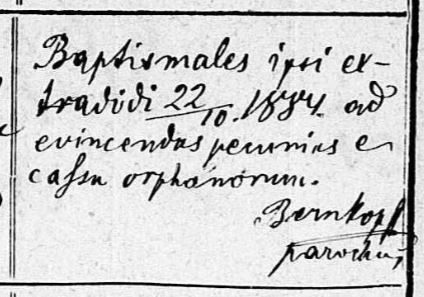 Baptismales ipsi ex-
tradidi 22/10. 1884. ad
evincendas pecunias e
cassa orphanorum.
Bernkopf
parochus